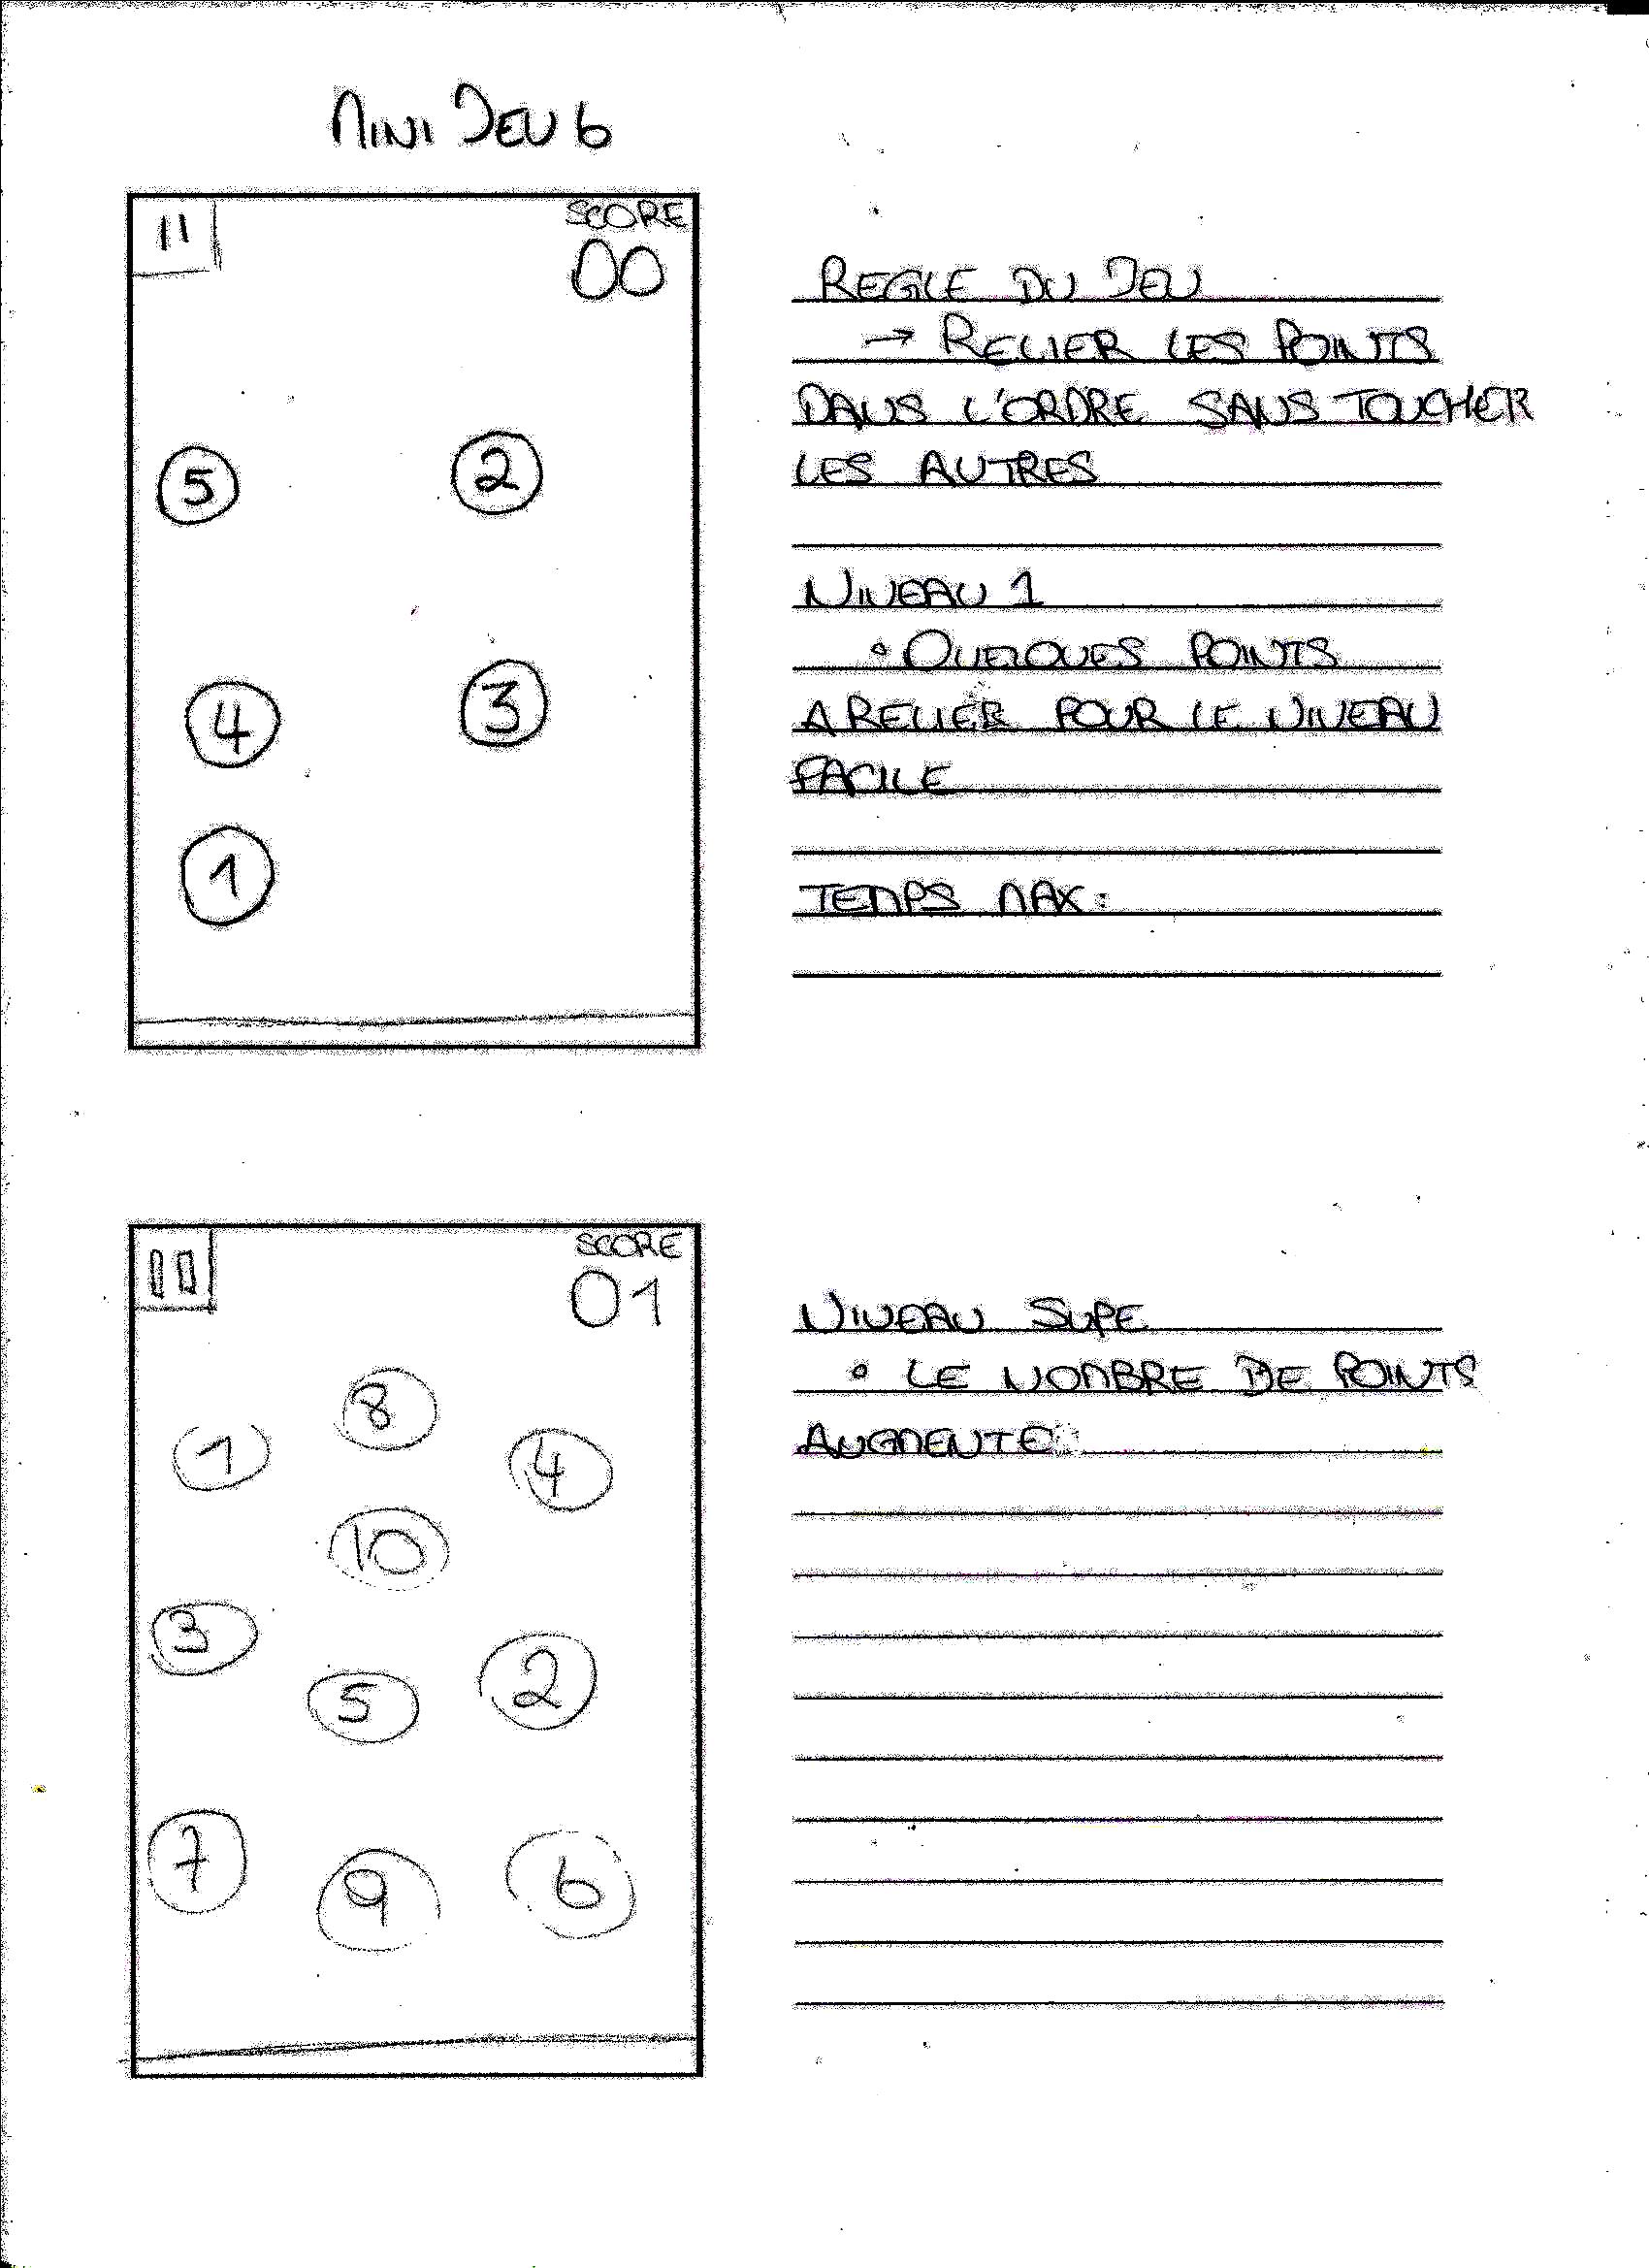 MINI JEU 6
SCORE
00
5 2
4 3
1
REGLE DU JEU
→ RELIER LES POINTS
DANS L'ORDRE SANS TOUCHER
LES AUTRES
NIVEAU 1
• QUELQUES POINTS
A RELIER POUR LE NIVEAU
FACILE
TEMPS MAX:
SCORE
01
8
1 4
10
3
5 2
7 9 6
NIVEAU SUPE
• LE NOMBRE DE POINTS
AUGMENTE